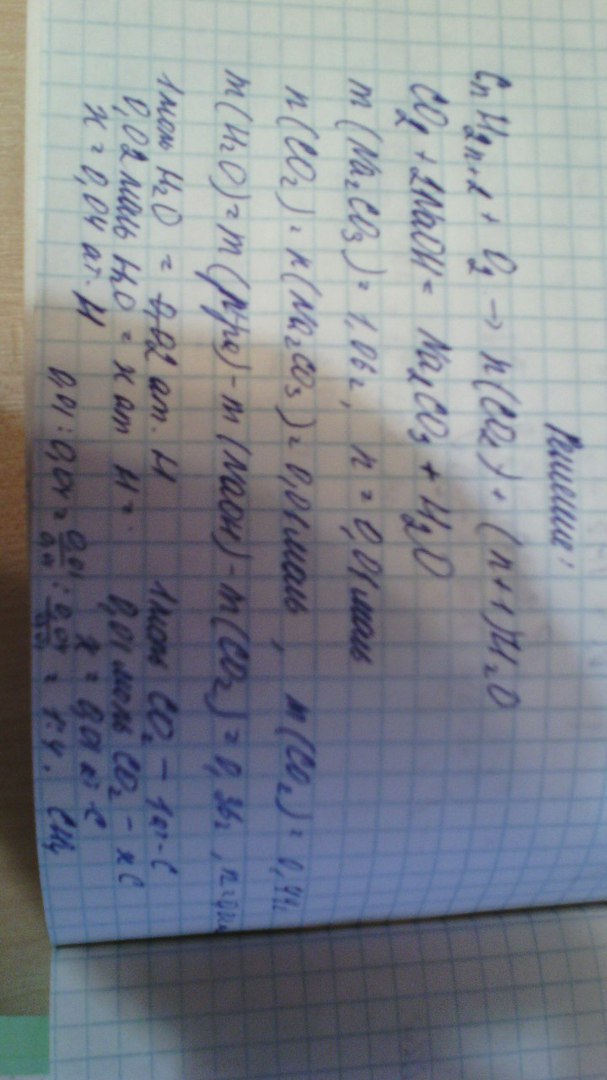 Решение:
CnH2n+2 + O2 → n(CO2) + (n+1)H2O
CO2 + 2NaOH = Na2CO3 + H2O
m(Na2CO3) = 1,06г, n = 0,01моль
n(CO2) = n(Na2CO3) = 0,01моль, m(CO2) = 0,44г
m(H2O) = m(р-ра) - m(NaOH) - m(CO2) = 0,36г,
1моль H2O = 2 ат. H 1моль CO2 - 1 ат. C
0,02 моль H2O = x ат H = 0,01 моль CO2 - x C
x = 0,04 ат. H x = 0,01 ат C
0,01 : 0,04 = 0,01/0,01 : 0,04/0,01 = 1:4. CH4